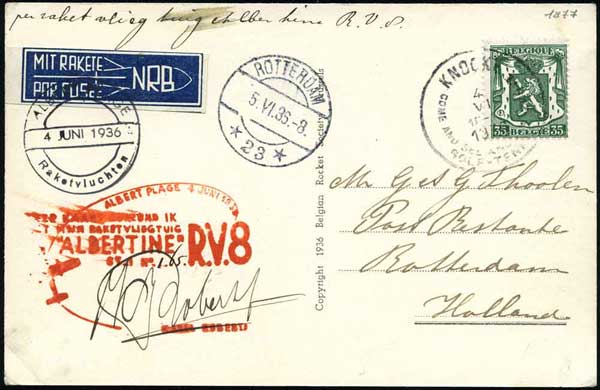 per raket vliegtuig Albertine R.V.8.
1877
MIT RAKETE
PAR FUSÉE
NRB
4 JUNI 1936
Raketvluchten
ROTTERDAM
5.VI.36.-8.
* 23 *
KNOCK
4
VI
19
BELGIQUE
35 BELGIE 35
ALBERT PLAGE 4 JUNI 1936
IK
MIJN RAKETVLIEGTUIG
"ALBERTINE" R.V.8
No. 1.05.
Roberti
KAREL ROBERTI
Copyright 1936 Belgian Rocket Society
Mr G. A. G. Thoolen
Post Restante
Rotterdam
Holland